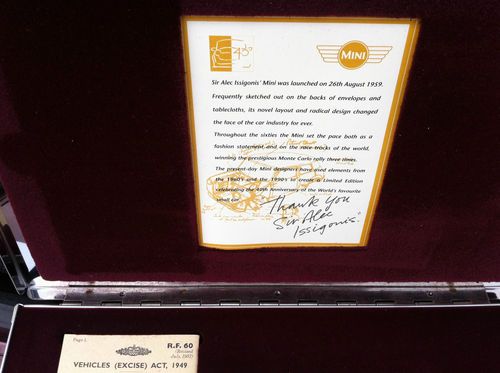 MINI
Sir Alec Issigonis' Mini was launched on 26th August 1959.
Frequently sketched out on the backs of envelopes and
tablecloths, its novel layout and radical design changed
the face of the car industry for ever.
Throughout the sixties the Mini set the pace both as a
fashion statement and on the race tracks of the world,
winning the prestigious Monte Carlo rally three times.
The present-day Mini designers have used elements from
the 1960's and the 1990's to create a Limited Edition
celebrating the 40th Anniversary of the World's favourite
small car.
"Thank You
Sir Alec
Issigonis."
Page 1.
R.F. 60
(Revised
July, 1967)
VEHICLES (EXCISE) ACT, 1949